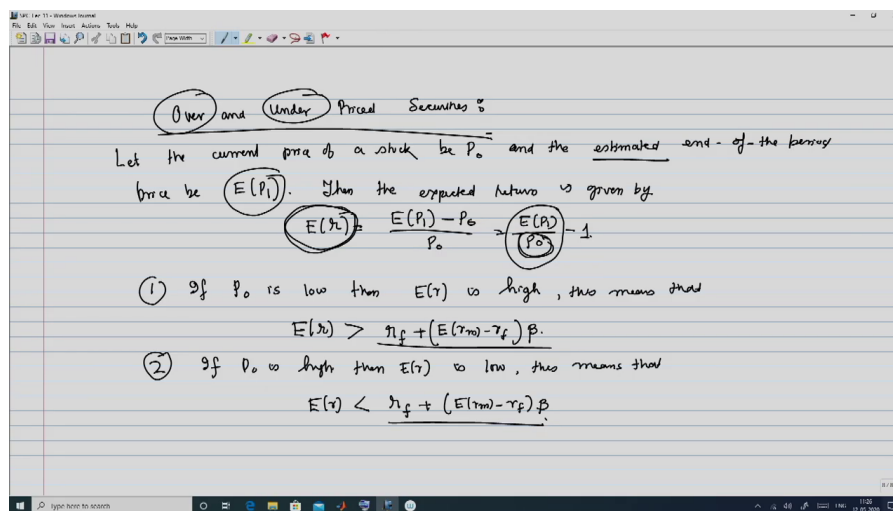 SPC Lec 11 - Windows Journal
File Edit View Insert Actions Tools Help
Page Width
Over and Under Priced Securities :
Let the current price of a stock be P₀ and the estimated end-of-the period
price be E(P₁). Then the expected return is given by
E(r) = E(P₁) - P₀ / P₀ = E(P₁) / P₀ - 1
① If P₀ is low then E(r) is high, this means that
E(r) > r_f + (E(r_m) - r_f) β.
② If P₀ is high then E(r) is low, this means that
E(r) < r_f + (E(r_m) - r_f) β.
8/8
Type here to search
ENG
11:26
12-05-2020